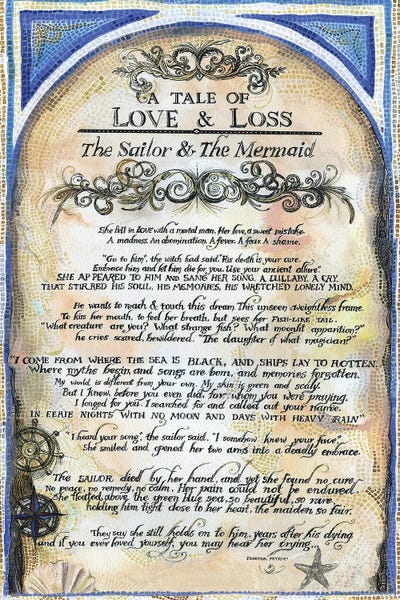 A TALE OF
LOVE & LOSS
The Sailor & The Mermaid
She fell in LOVE with a mortal man. Her love, a sweet mistake.
A madness. An abomination. A fever. A fear. A shame.
"Go to him", the witch had said. "His death is your cure.
Embrace him and let him die for you. Use your ancient allure".
SHE APPEARED TO HIM AND SANG HER SONG. A LULLABY. A CRY.
THAT STIRRED HIS SOUL, HIS MEMORIES, HIS WRETCHED LONELY MIND.
He wants to reach & touch this dream. This unseen weightless frame.
To kiss her mouth, to feel her breath, but sees her FISH-LIKE TAIL.
"What creature are you? What strange fish? What moonlit apparition?"
he cries scared, bewildered. "The daughter of what magician?"
"I COME FROM WHERE THE SEA IS BLACK, AND SHIPS LAY TO ROTTEN.
Where myths begin and songs are born, and memories forgotten.
My world is different from your own. My skin is green and scaly.
But I knew, before you even did, for whom you were praying.
I longed for you. I searched for and called out your name.
IN EERIE NIGHTS WITH NO MOON AND DAYS WITH HEAVY RAIN"
"I heard your song", the sailor said. "I somehow knew your face".
She smiled and opened her two arms into a deadly embrace.
"The SAILOR died by her hand, and yet she found no cure.
No peace, no remedy, no calm. Her pain could not be endured.
She floated above the green hug sea, so beautiful, so rare,
holding him tight close to her heart, the maiden so fair.
They say she still holds on to him, years after his dying
and if you ever loved yourself, you may hear her crying...